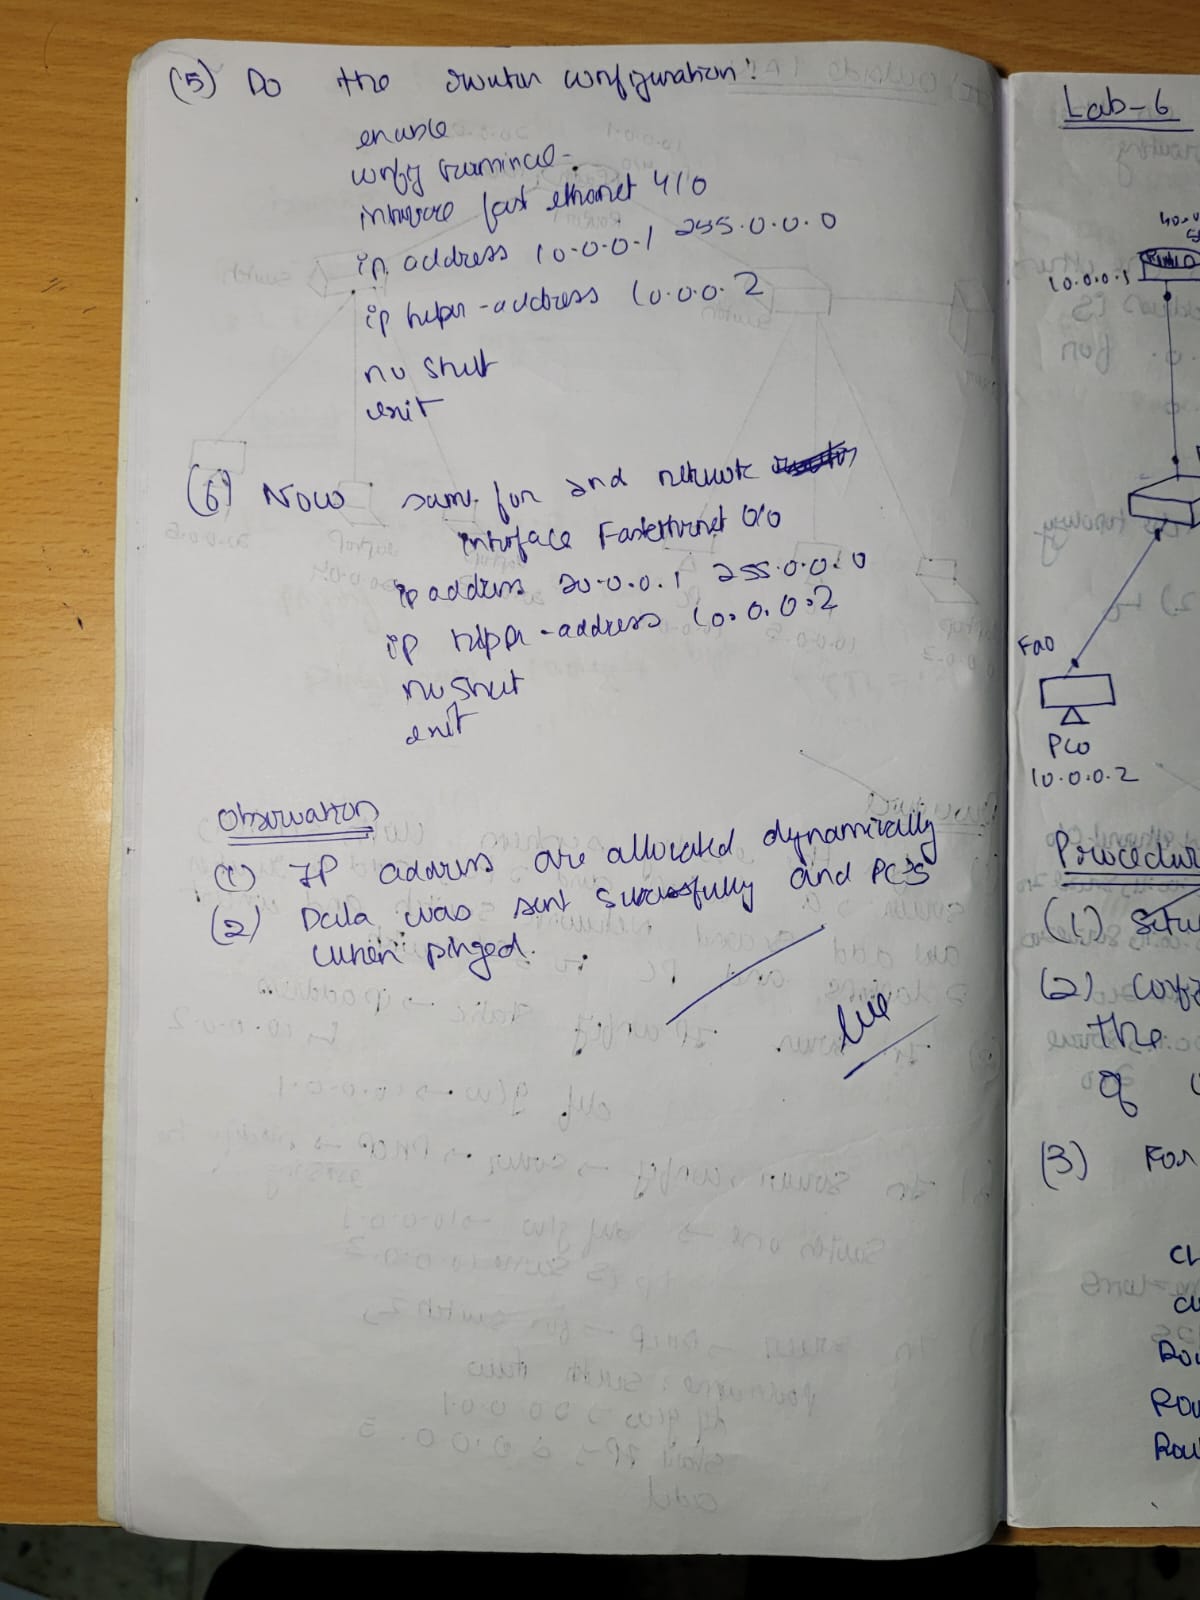 (5) Do the router configuration:
enable
config terminal
interface fast ethernet 4/0
ip address 10.0.0.1 255.0.0.0
ip helper-address 10.0.0.2
no shut
exit
(6) Now same for 2nd network
interface Fastethernet 0/0
ip address 20.0.0.1 255.0.0.0
ip helper-address 10.0.0.2
no shut
exit
Observation
(1) IP address are allocated dynamically
(2) Data was sent successfully and PC's
when pinged.
Lab-6
10.0.0.1
Fa0
PC0
10.0.0.2
Procedur
(1) Setu
(2) Config
the
of
(3) For
CL
Rou
Rou
Rou